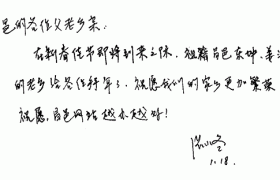 邑的各位父老乡亲:
在新春佳节即将到来之际,祖籍昌邑东冢、姜泊
的老乡给各位拜年了,祝愿我们的家乡更加繁荣
祝愿昌邑网站越办越好!
1.18.